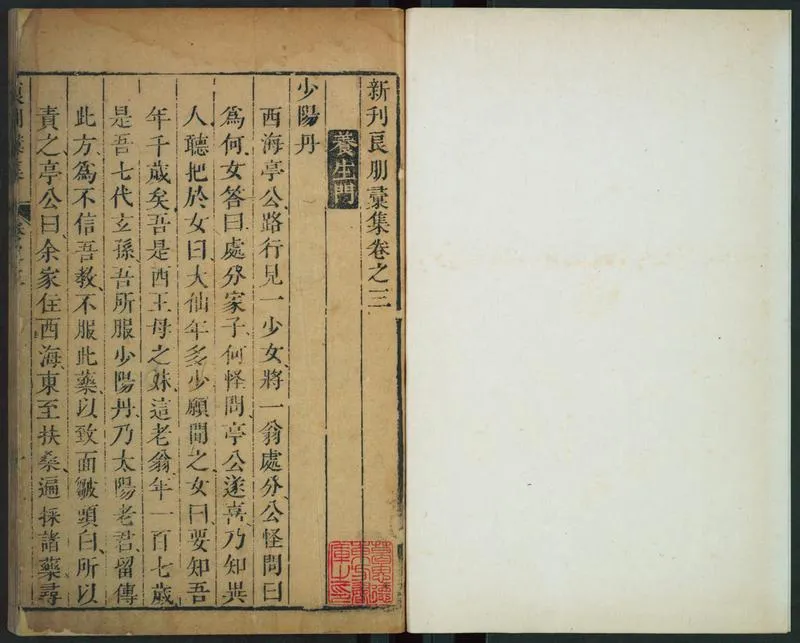 新刊良朋彙集卷之三
養生門
少陽丹
西海亭公路行見一少女將一翁處分公怪問曰
爲何女答曰處分家子何怪問亭公遂喜乃知異
人聽把於女曰大仙年多少願聞之女曰要知吾
年千歲矣吾是西王母之妹這老翁年一百七歲
是吾七代玄孫吾所服少陽丹乃太陽老君留傳
此方爲不信吾教不服此藥以致面皺頭白所以
責之亭公曰余家住西海東至扶桑遍採諸藥尋